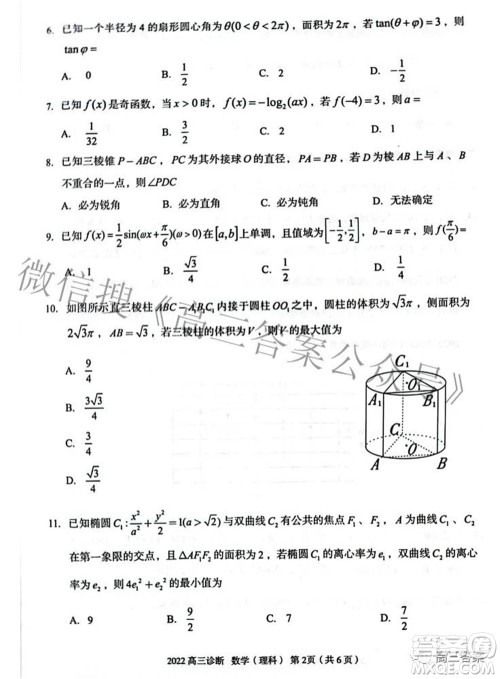 6. 已知一个半径为 4 的扇形圆心角为θ(0<θ<2π)，面积为2π，若 tan(θ+φ)=3，则
tanφ=
A. 0 B. 1/2 C. 2 D. -1/2
7. 已知 f(x) 是奇函数，当 x>0 时，f(x)=-log₂(ax)，若 f(-4)=3，则 a=
A. 1/32 B. 1/2 C. 2 D. 3/2
8. 已知三棱锥 P-ABC，PC 为其外接球 O 的直径，若 D 为棱 AB 上的与 A、B
不重合的一点，则∠PDC
A. 必为锐角 B. 必为直角 C. 必为钝角 D. 无法确定
9. 已知 f(x)=1/2 sin(ωx+π/6)(ω>0)在[a,b]上单调，且值域为[-1/2,1/2]，b-a=π，则 f(π/6)=
A. 1 B. √3/4 C. 1/2 D. 1/4
10. 如图所示直三棱柱 ABC-A₁B₁C₁ 内接于圆柱 OO₁ 之中，圆柱的体积为√3π，侧面积为
2√3π，AB=√3．若三棱柱的体积为V，则V的最大值为
A. 9/4
B. 3√3/4
C. 3/4
D. √3/4
C₁
O₁
A₁
B₁
C
O
A
B
11. 已知椭圆 C₁: x²/a²+y²/2=1(a>√2) 与双曲线 C₂ 有公共的焦点 F₁、F₂，A 为曲线 C₁、C₂
在第一象限的交点，且△AF₁F₂的面积为 2，若椭圆 C₁ 的离心率为 e₁，双曲线 C₂ 的离
心率为 e₂，则 4e₁²+e₂² 的最小值为
A. 9 B. 9/2 C. 7 D. 7/2
2022 高三诊断 数学（理科） 第2页（共 6 页）
微信搜《高三答案公众号》
高三答案